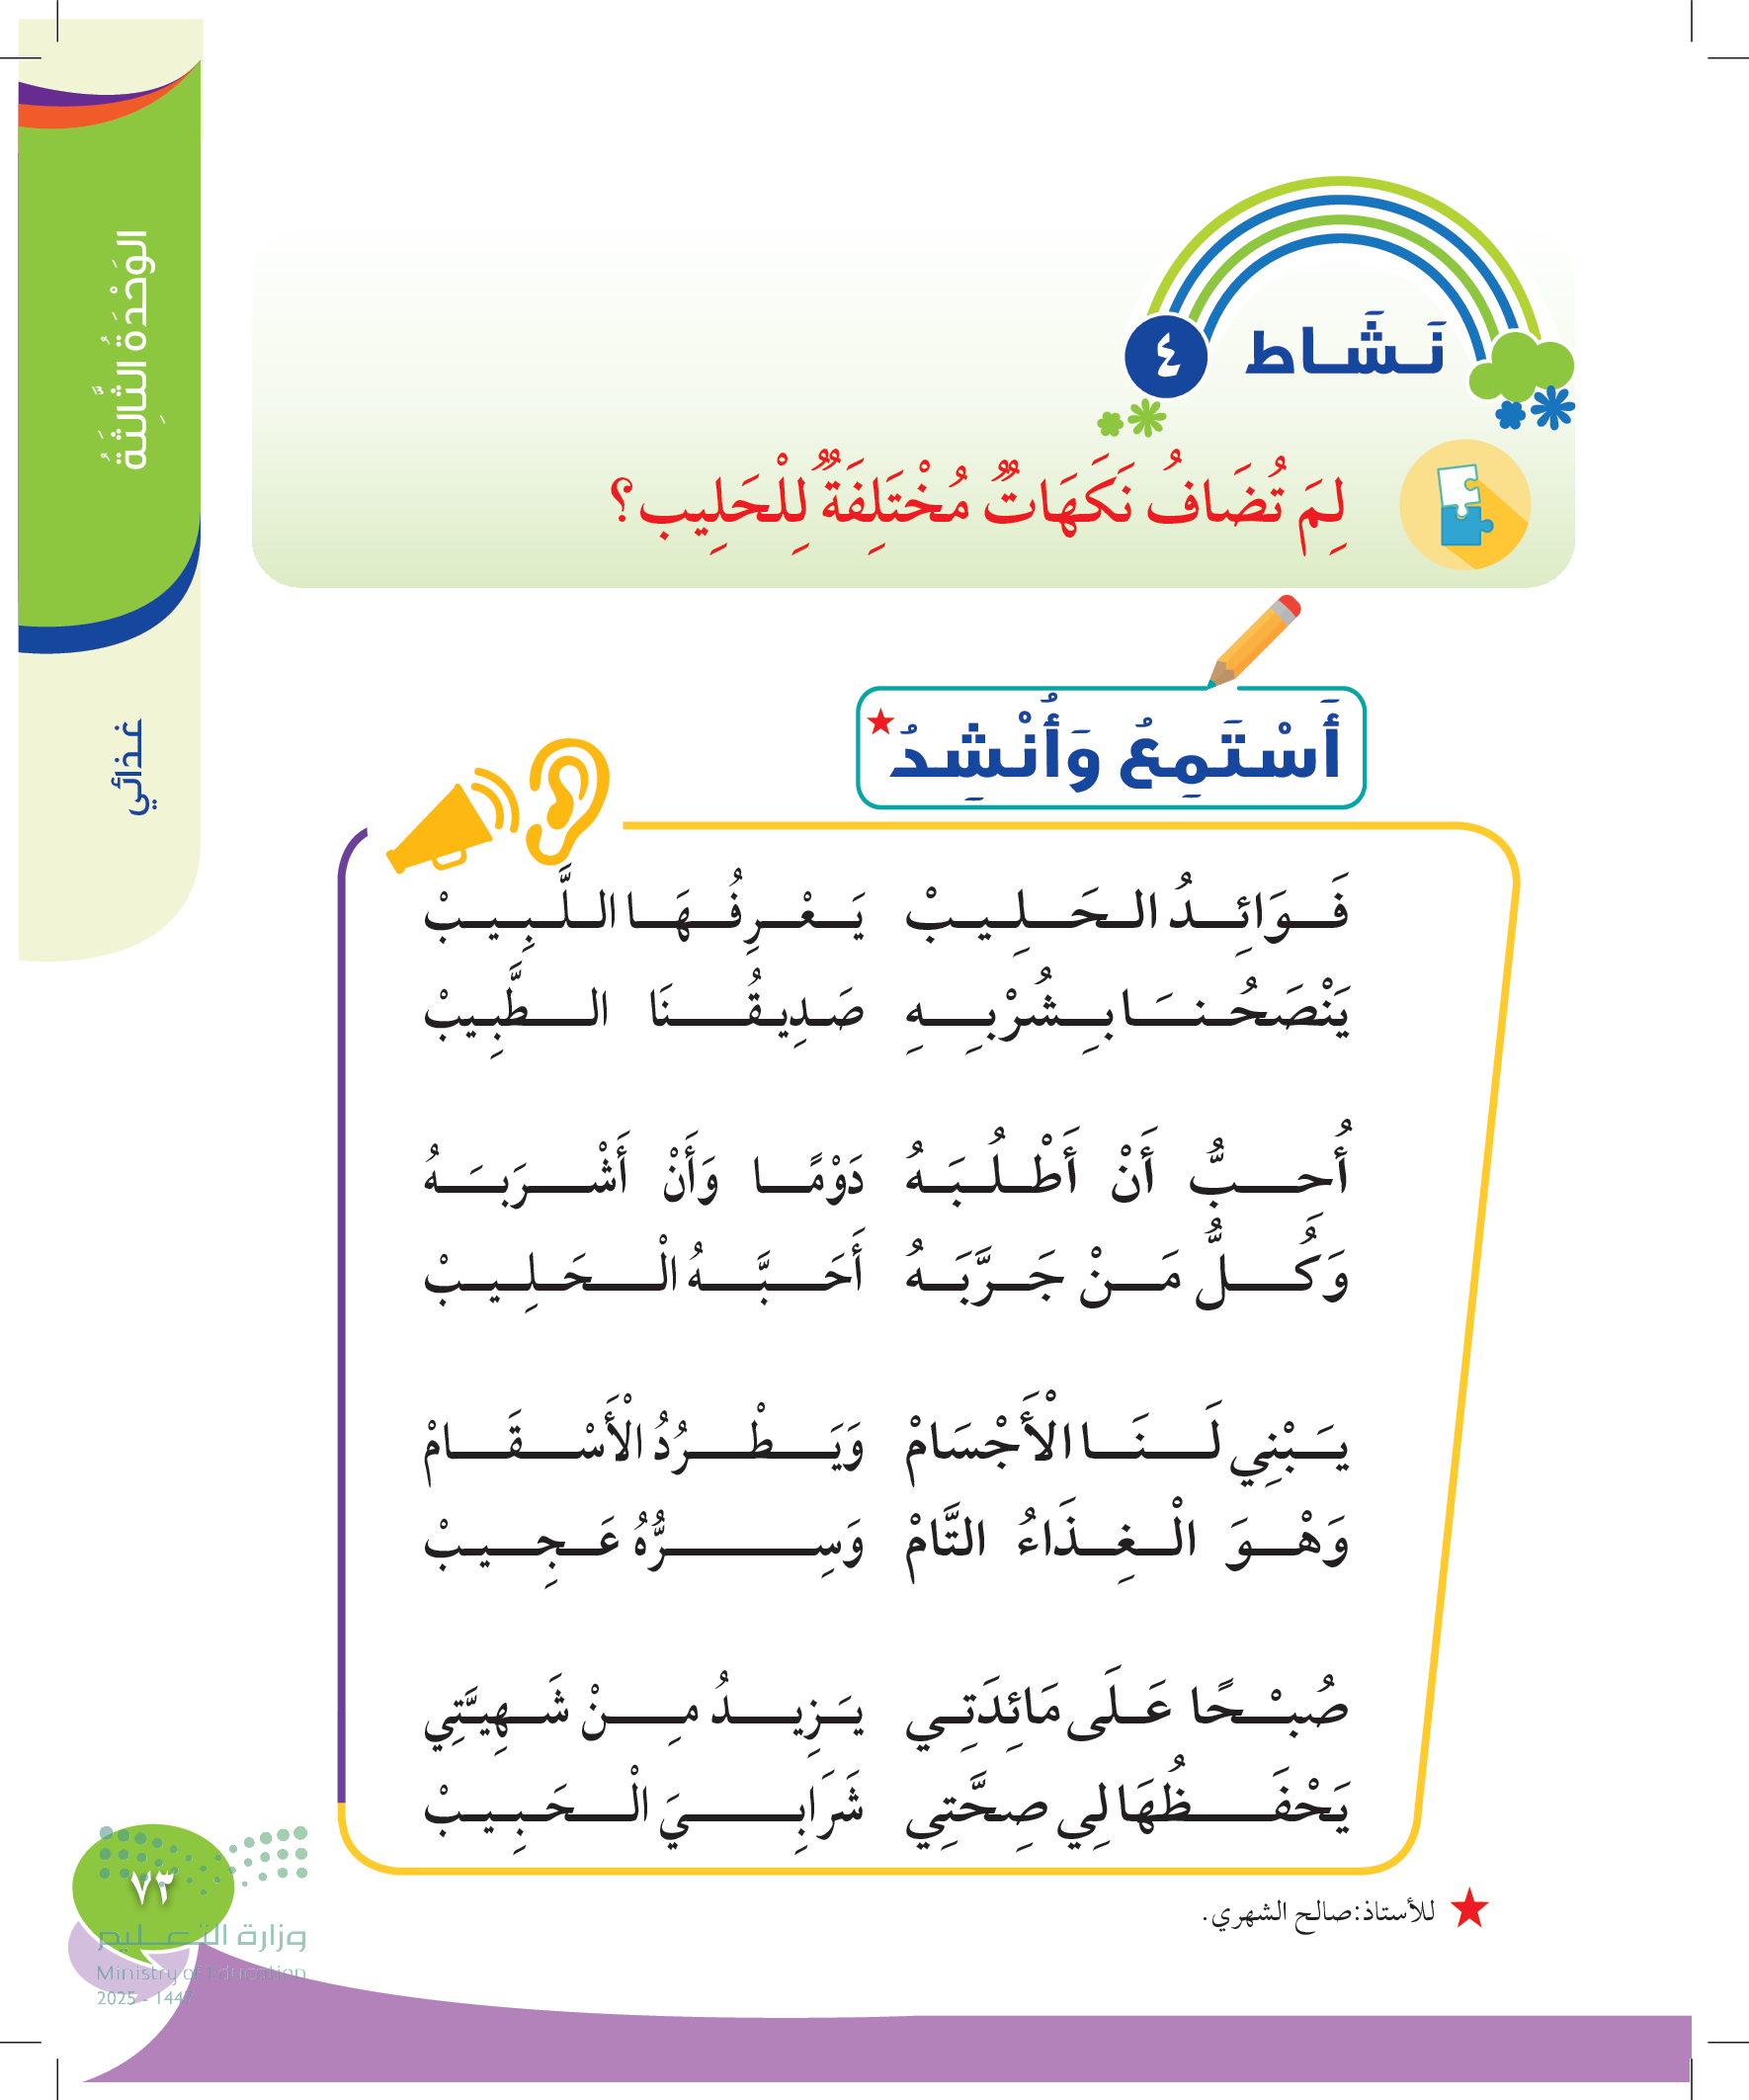 الوَحْدَةُ الثَّالِثَةُ
غذائي
نَشَاط ٤
لِمَ تُضَافُ نَكَهَاتٌ مُخْتَلِفَةٌ لِلْحَلِيبِ؟
أَسْتَمِعُ وَأُنْشِدُ
فَوَائِدُ الحَلِيبْ يَعْرِفُهَا اللَّبِيبْ
يَنْصَحُنَا بِشُرْبِهِ صَدِيقُنَا الطَّبِيبْ
أُحِبُّ أَنْ أَطْلُبَهُ دَوْمًا وَأَنْ أَشْرَبَهُ
وَكُلُّ مَنْ جَرَّبَهُ أَحَبَّهُ الْحَلِيبْ
يَبْنِي لَنَا الْأَجْسَامْ وَيَطْرُدُ الْأَسْقَامْ
وَهْوَ الْغِذَاءُ التَّامْ وَسِرُّهُ عَجِيبْ
صُبْحًا عَلَى مَائِدَتِي يَزِيدُ مِنْ شَهِيَّتِي
يَحْفَظُهَا لِي صِحَّتِي شَرَابِيَ الْحَبِيبْ
للأستاذ:صالح الشهري.
٧٣
وزارة التعليم
Ministry of Education
2025 - 1447